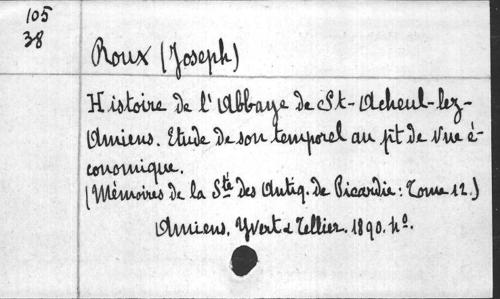 105
38
Roux (Joseph)
Histoire de l'Abbaye de St-Acheul-lez-
Amiens. Etude de son temporel au pt de vue é-
conomique.
(Mémoires de la Sté des Antiq. de Picardie: Tome 12.)
Amiens. Yvert & Tellier. 1890. 4º.